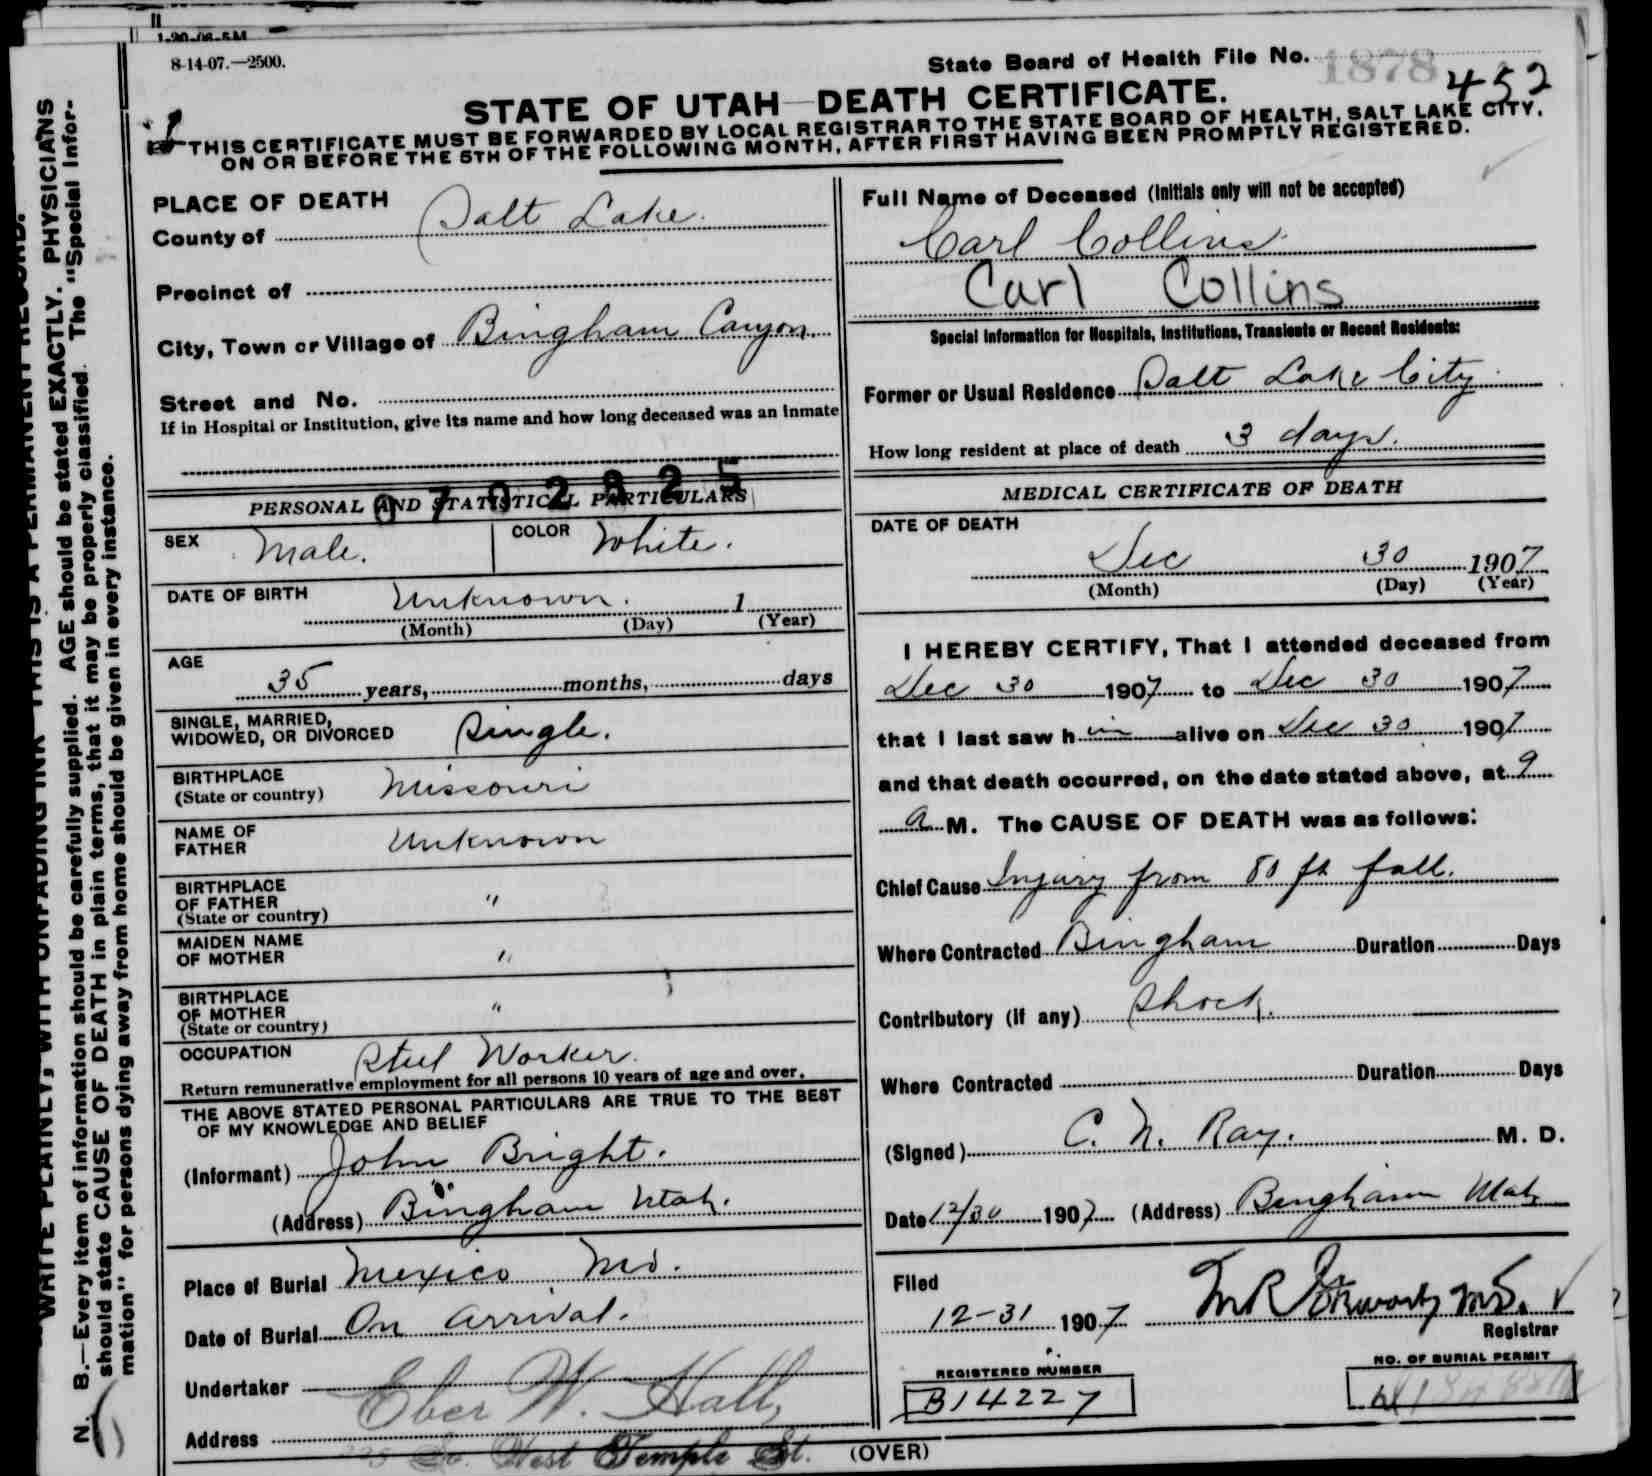 1-20-06-5M
8-14-07.—2500.
State Board of Health File No. 1878
452
STATE OF UTAH—DEATH CERTIFICATE.
THIS CERTIFICATE MUST BE FORWARDED BY LOCAL REGISTRAR TO THE STATE BOARD OF HEALTH, SALT LAKE CITY,
ON OR BEFORE THE 5TH OF THE FOLLOWING MONTH, AFTER FIRST HAVING BEEN PROMPTLY REGISTERED.
PLACE OF DEATH
County of Salt Lake.
Precinct of
City, Town or Village of Bingham Canyon
Street and No.
If in Hospital or Institution, give its name and how long deceased was an Inmate
PERSONAL AND STATISTICAL PARTICULARS
SEX Male. COLOR White.
DATE OF BIRTH Unknown. 1
(Month) (Day) (Year)
AGE
35 years, months, days
SINGLE, MARRIED,
WIDOWED, OR DIVORCED Single.
BIRTHPLACE
(State or country) Missouri
NAME OF
FATHER Unknown
BIRTHPLACE
OF FATHER "
(State or country)
MAIDEN NAME
OF MOTHER "
BIRTHPLACE
OF MOTHER "
(State or country)
OCCUPATION Steel Worker.
Return remunerative employment for all persons 10 years of age and over.
THE ABOVE STATED PERSONAL PARTICULARS ARE TRUE TO THE BEST
OF MY KNOWLEDGE AND BELIEF
(Informant) John Bright.
(Address) Bingham Utah.
Place of Burial Mexico Mo.
Date of Burial On arrival.
Undertaker Eber W. Hall,
Address So. West Temple St.
(OVER)
Full Name of Deceased (Initials only will not be accepted)
Carl Collins
Carl Collins
Special Information for Hospitals, Institutions, Transients or Recent Residents:
Former or Usual Residence Salt Lake City
How long resident at place of death 3 days.
MEDICAL CERTIFICATE OF DEATH
DATE OF DEATH
Dec 30 1907
(Month) (Day) (Year)
I HEREBY CERTIFY, That I attended deceased from
Dec 30 1907 to Dec 30 1907
that I last saw h im alive on Dec 30 1907
and that death occurred, on the date stated above, at 9
a M. The CAUSE OF DEATH was as follows:
Chief Cause Injury from 80 ft fall.
Where Contracted Bingham Duration Days
Contributory (if any) Shock.
Where Contracted Duration Days
(Signed) C. N. Ray. M. D.
Date 12/30 1907 (Address) Bingham Utah
Filed
12-31 1907
Registrar
REGISTERED NUMBER
B14227
NO. OF BURIAL PERMIT
WRITE PLAINLY, WITH UNFADING INK—THIS IS A PERMANENT RECORD.
N. B.—Every item of information should be carefully supplied. AGE should be stated EXACTLY. PHYSICIANS
should state CAUSE OF DEATH in plain terms, that it may be properly classified. The "Special Infor-
mation" for persons dying away from home should be given in every instance.